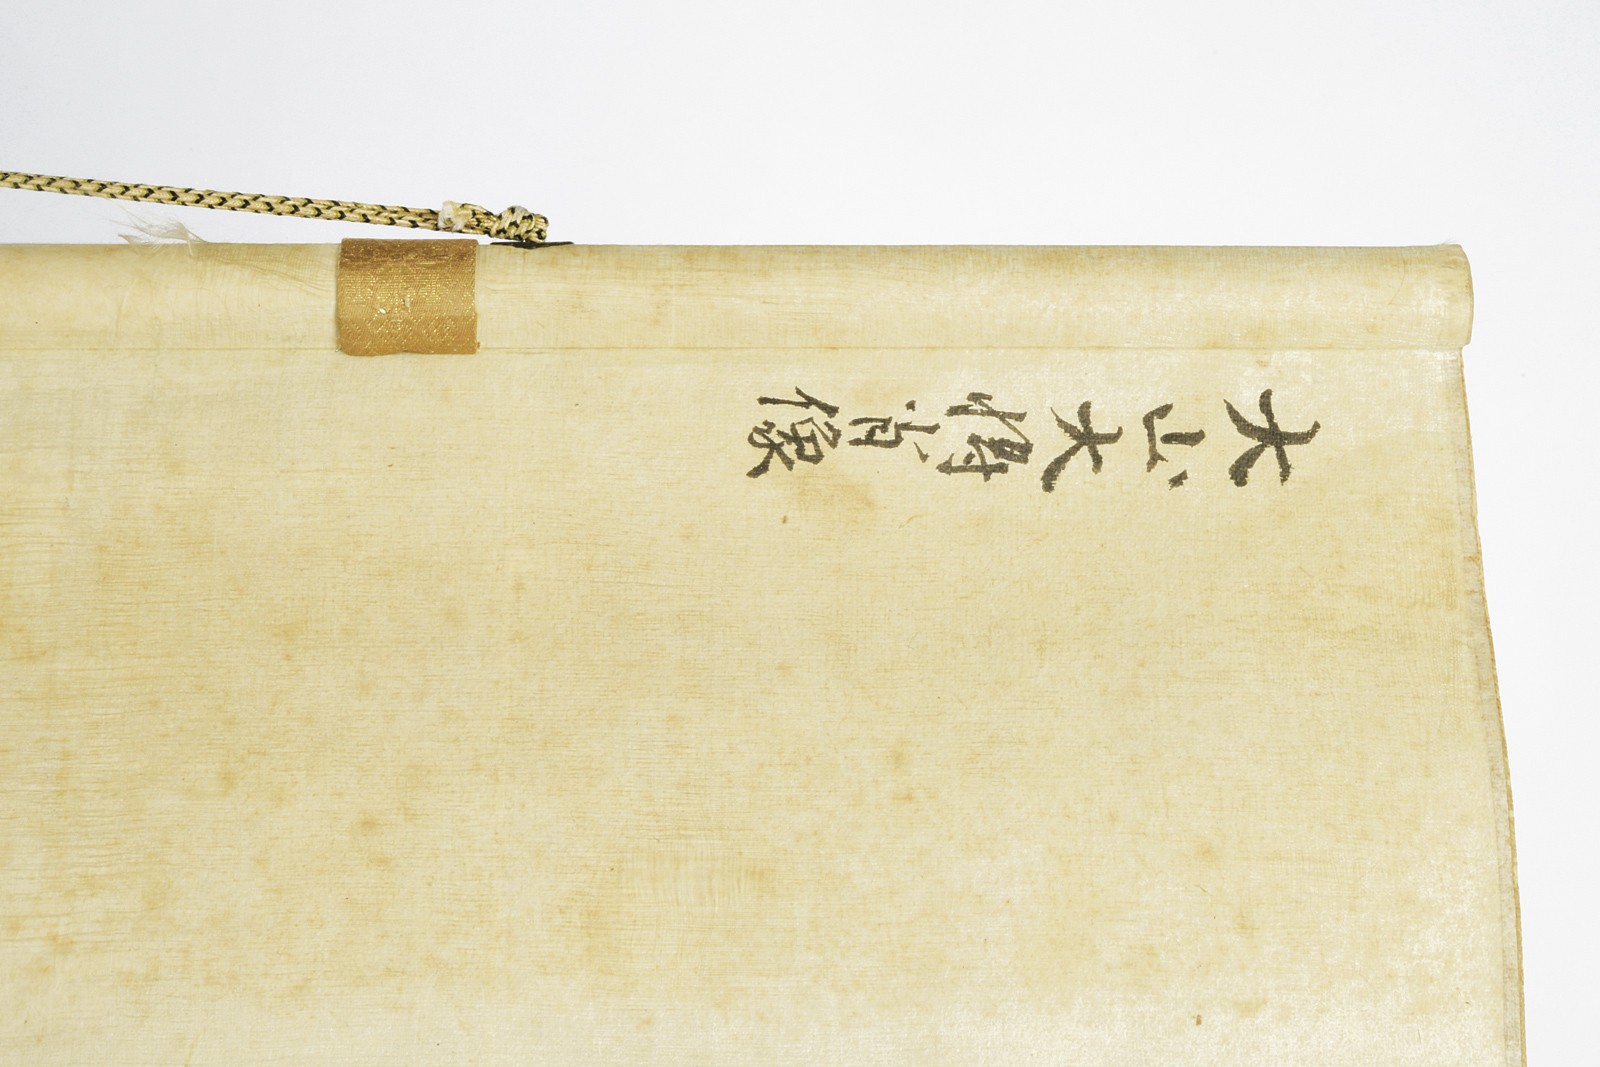 大山大將肖像